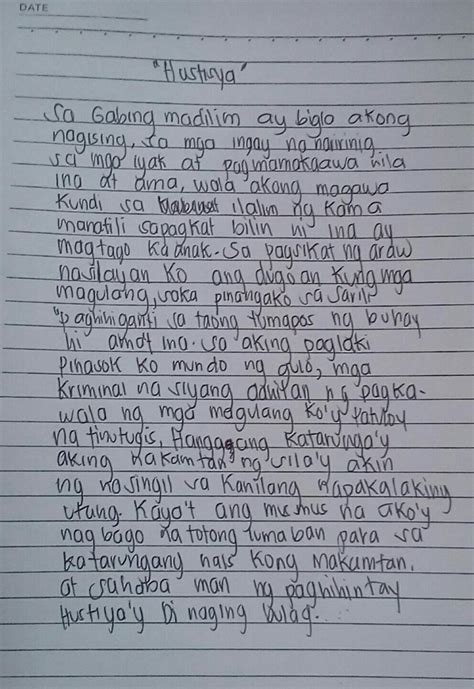 DATE
"Hustisya"
Sa Gabing madilim ay bigla akong
nagising, sa mga ingay na naririnig
sa mga iyak at pagmamakaawa nila
ina at ama, wala akong magawa
kundi sa ilalim ng kama
manatili sapagkat bilin ni ina ay
magtago ka anak. Sa pagsikat ng araw
nasilayan ko ang dugoan kung mga
magulang, saka pinangako sa sarili
"paghihiganti sa taong tumapos ng buhay
ni ama't ina. sa aking paglaki
pinasok ko mundo ng gulo, mga
kriminal na siyang ng pagka-
wala ng mga magulang ko'y patuloy
na tinutugis, Hanggang katarunga'y
aking makamtan ng sila'y akin
ng masingil sa kanilang napakalaking
utang. Kaya't ang musmus na ako'y
nagbago natotong lumaban para sa
katarungang nais kong makamtan.
at sahaba man ng paghihintay
Hustiya'y Di naging bulag...